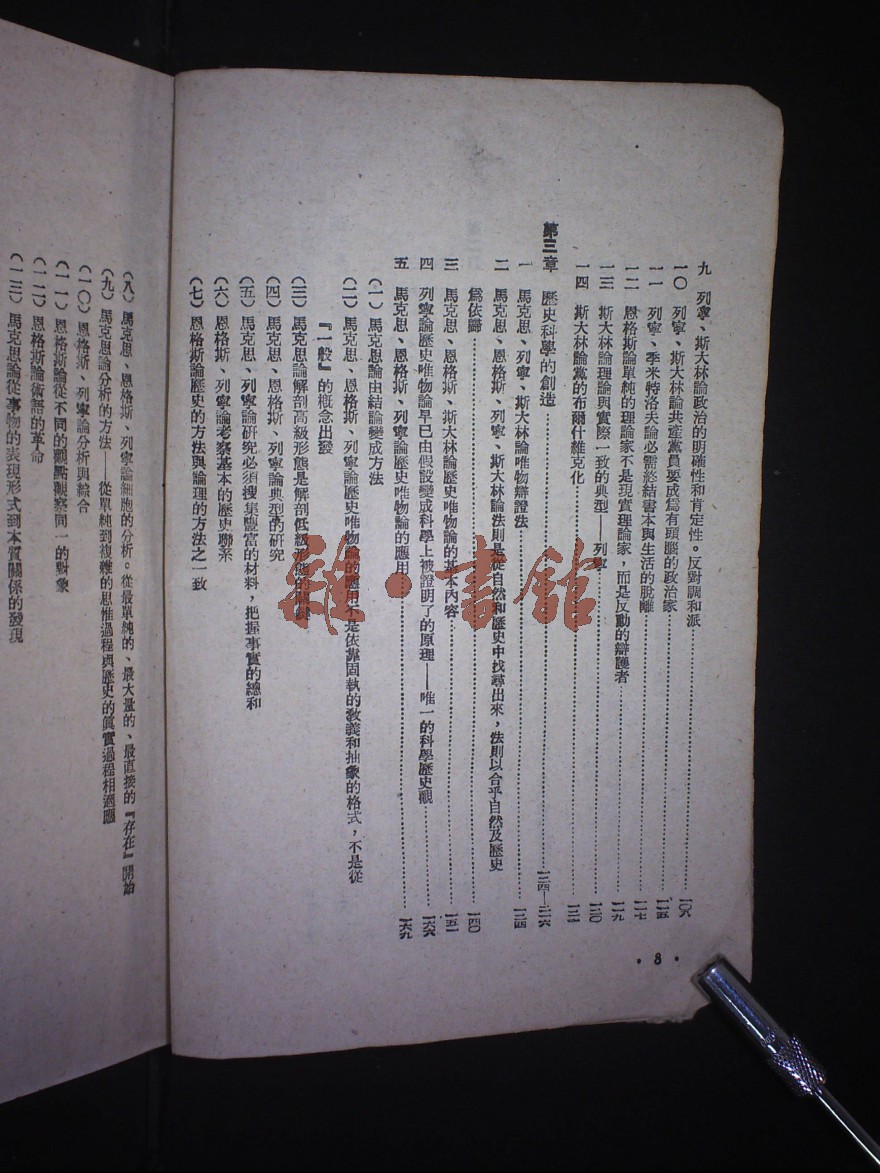 九 列寧、斯大林論政治的明確性和肯定性。反對調和派……一〇六
一〇 列寧、斯大林論共產黨員要成爲有頭腦的政治家……一一五
一一 列寧、季米特洛夫論必需終結書本與生活的脫離……一一七
一二 恩格斯論單純的理論家不是現實理論家，而是反動的辯護者……一一九
一三 斯大林論理論與實際一致的典型——列寧……一二〇
一四 斯大林論黨的布爾什維克化
第三章 歷史科學的創造
一 馬克思、列寧、斯大林論唯物辯證法……一三四
二 馬克思、恩格斯、列寧、斯大林論法則是從自然和歷史中找尋出來，法則以合乎自然及歷史
爲依歸……一四〇
三 馬克思、恩格斯、斯大林論歷史唯物論的基本內容……一五一
四 列寧論歷史唯物論早已由假設變成科學上被證明了的原理——唯一的科學歷史觀……一六六
五 馬克思、恩格斯、列寧論歷史唯物論的應用……一六九
（一）馬克思論由結論變成方法
（二）馬克思、恩格斯、列寧論歷史唯物論的應用不是依靠固執的教義和抽象的格式，不是從
『一般』的概念出發
（三）馬克思論解剖高級形態是解剖低級形態的關鍵
（四）馬克思、恩格斯、列寧論典型的研究
（五）馬克思、列寧論研究必須搜集豐富的材料，把握事實的總和
（六）恩格斯、列寧論考察基本的歷史聯系
（七）恩格斯論歷史的方法與論理的方法之一致
· 8 ·
（八）馬克思、恩格斯、列寧論細胞的分析。從最單純的、最大量的、最直接的『存在』開始
（九）馬克思論分析的方法——從單純到複雜的思惟過程與歷史的眞實過程相適應
（一〇）恩格斯、列寧論分析與綜合
（一一）恩格斯論從不同的觀點觀察同一的對象
（一二）恩格斯論術語的革命
（一三）馬克思論從事物的表現形式到本質關係的發現
雜·書館